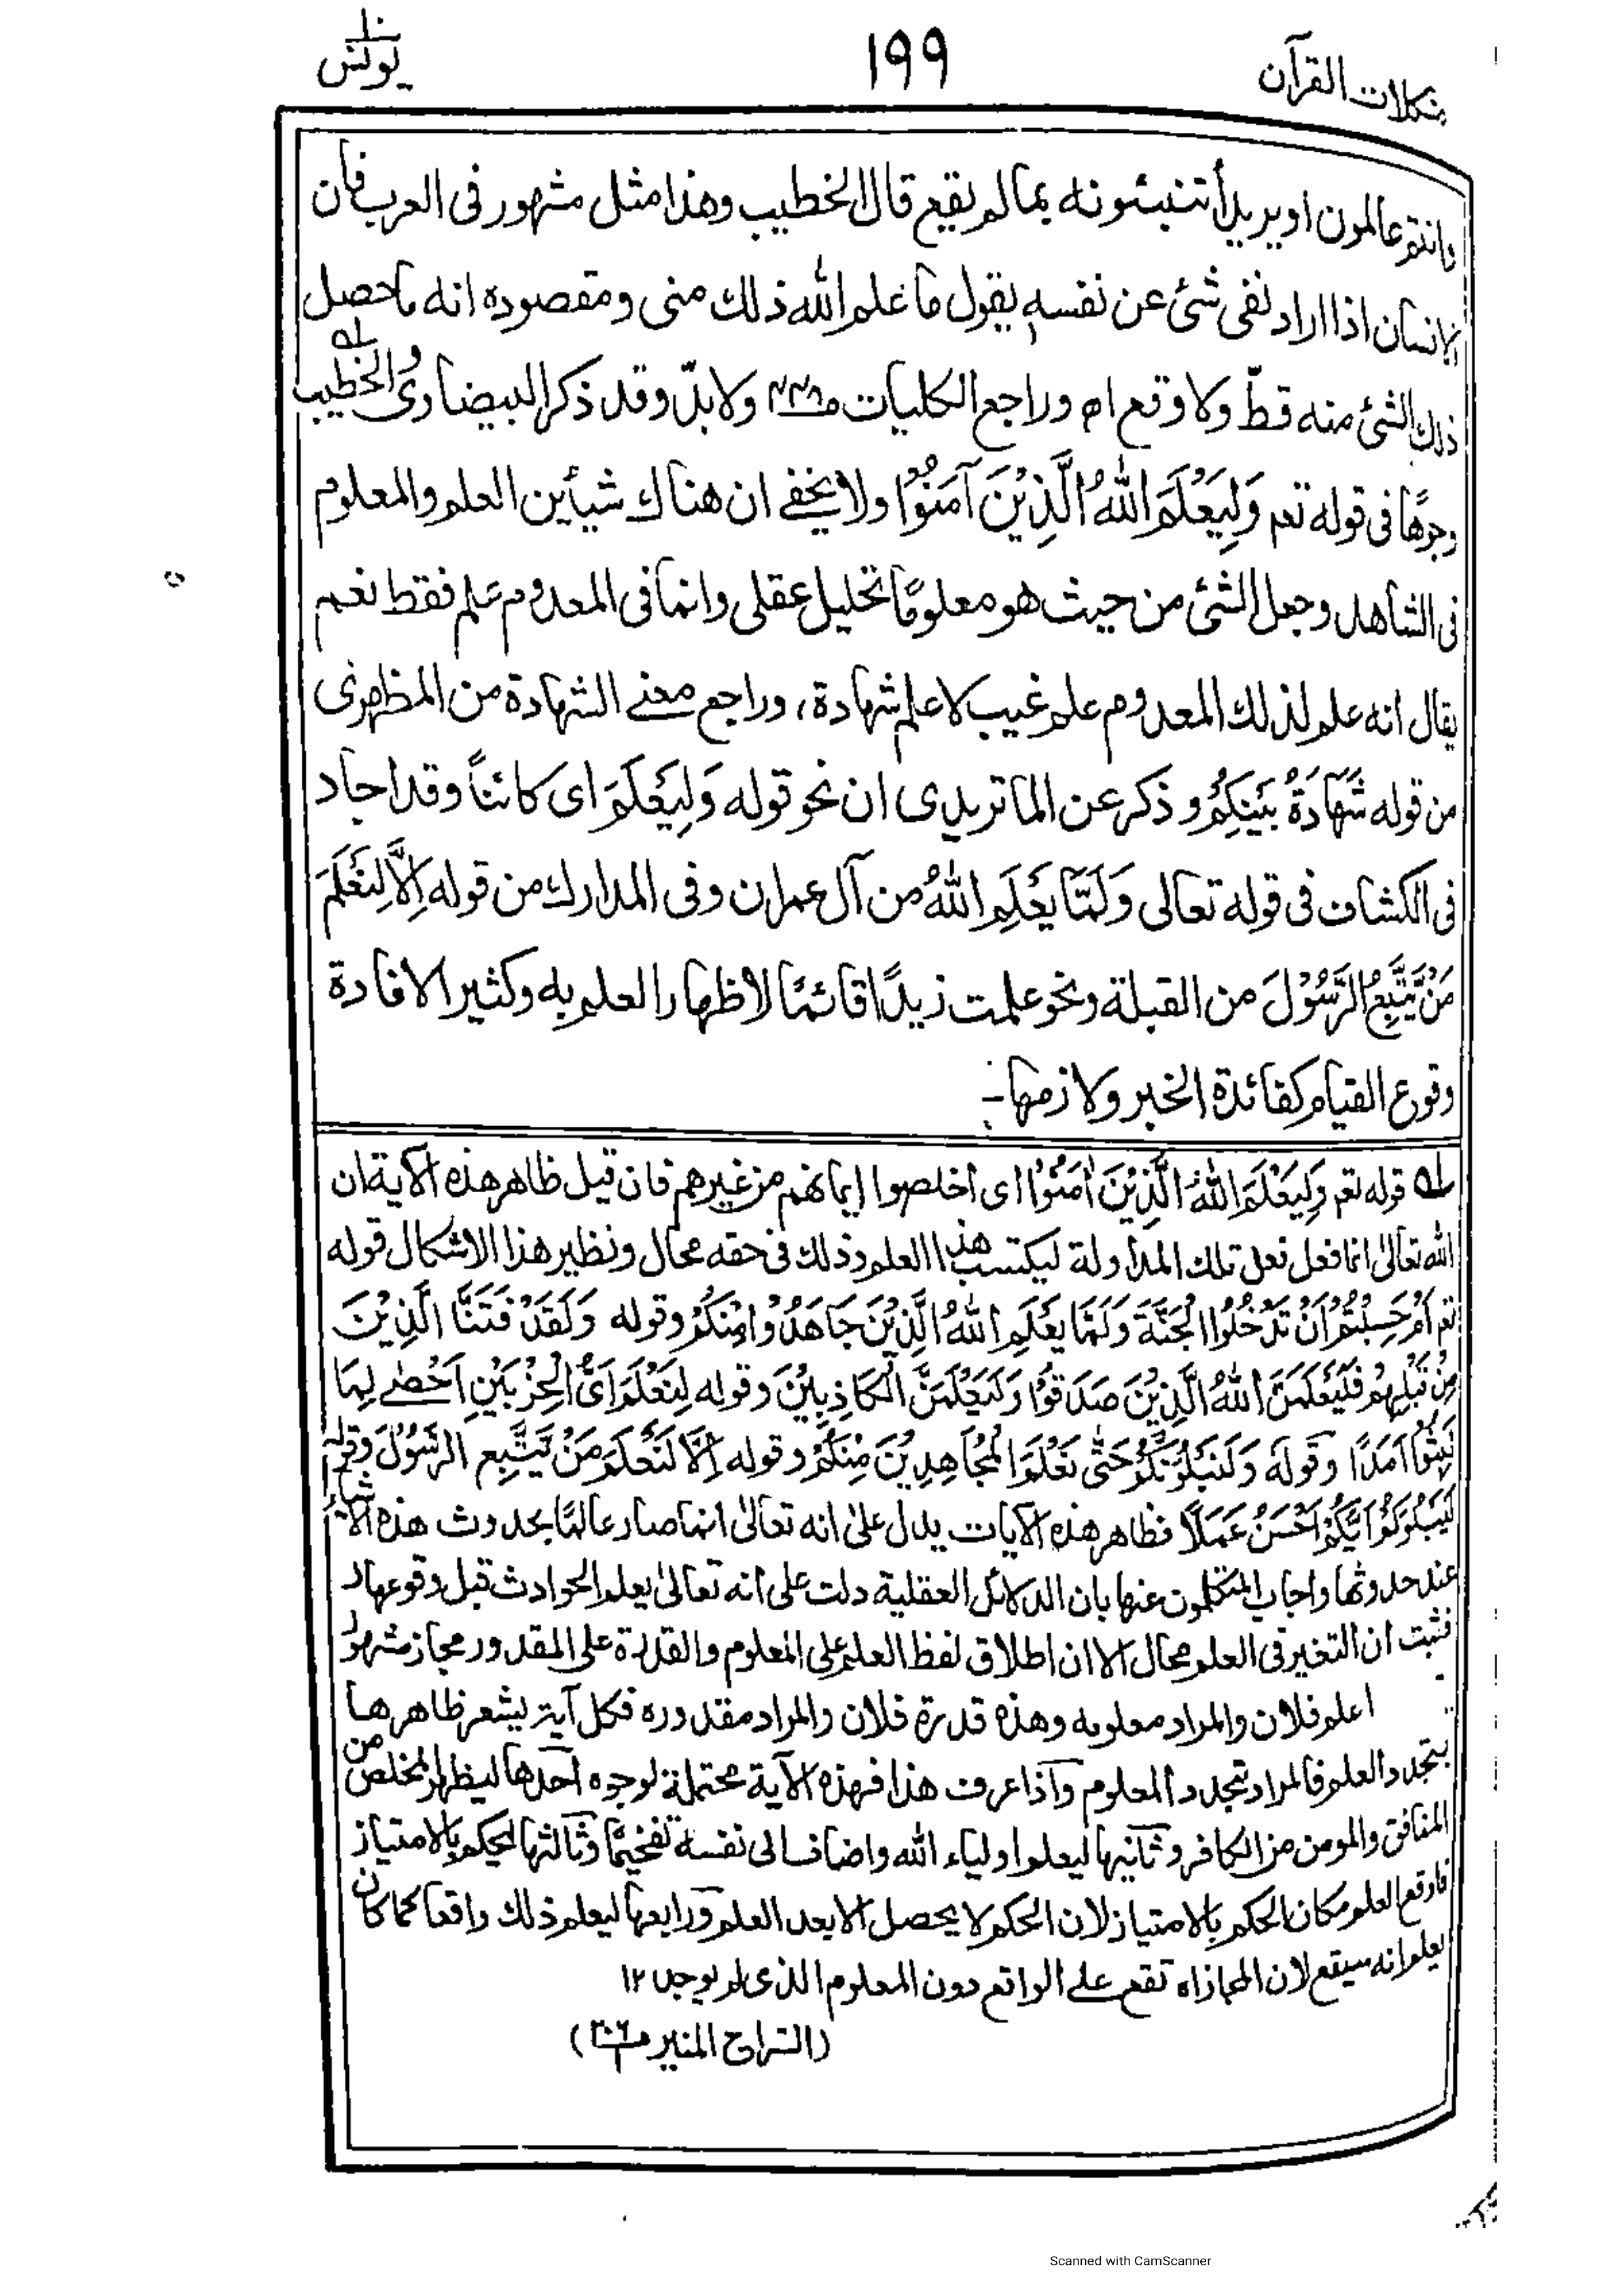 مشكلات القرآن
١٩٩
يونس
١٠
وانتم عالمون او يريد أتنبئونه بما لم يقع قال الخطيب وهذا مثل مشهور فى العرب فان
الانسان اذا اراد نفى شئ عن نفسه يقول ما علم الله ذلك منى ومقصوده انه ما حصل
ذلك الشئ منه قطّ ولا وقع اھ وراجع الكليات ولا بدّ وقد ذكر البيضاوى والخطيب
وجوهًا فى قوله تعہ وَلِيَعْلَمَ اللهُ الَّذِيْنَ آمَنُوْا ولا يخفے ان هناك شيأين العلم والمعلوم
فى الشاهد وجعل الشئ من حيث هو معلومًا تحليل عقلى وانما فى المعدوم علم فقط نعم
يقال انه علم لذلك المعدوم علم غيب لا علم شهادة، وراجع معنے الشهادة من المظهرى
من قوله شَهَادَةُ بَيْنِكُمْ و ذكر عن الماتريدى ان نحو قوله وَلِيَعْلَمَ اى كائناً وقد اجاد
فى الكشاف فى قوله تعالى وَلَمَّا يَعْلَمِ اللهُ من آل عمران وفى المدارك من قوله اِلَّا لِنَعْلَمَ
مَنْ يَّتَّبِعُ الرَّسُوْلَ من القبلة ونحو علمت زيدًا قائمًا لاظهار العلم به وكثير الافادة
وقوع القيام كفائدة الخبر ولازمها۔
لہ قوله تعہ وَلِيَعْلَمَ اللهُ الَّذِيْنَ اٰمَنُوْا اى اخلصوا ايمانهم من غيرهم فان قيل ظاهر هذه الآية ان
الله تعالىٰ انما فعل تلك المداولة ليكتسب هذا العلم وذلك فى حقه محال ونظير هذا الاشكال قوله
تعہ اَمْ حَسِبْتُمْ اَنْ تَدْخُلُوا الْجَنَّةَ وَلَمَّا يَعْلَمِ اللهُ الَّذِيْنَ جَاهَدُوْا مِنْكُمْ وقوله وَلَقَدْ فَتَنَّا الَّذِيْنَ
مِنْ قَبْلِهِمْ فَلَيَعْلَمَنَّ اللهُ الَّذِيْنَ صَدَقُوْا وَلَيَعْلَمَنَّ الْكَاذِبِيْنَ وقوله لِنَعْلَمَ اَىُّ الْحِزْبَيْنِ اَحْصٰے لِمَا
لَبِثُوْا اَمَدًا وقوله وَلَنَبْلُوَنَّكُمْ حَتّٰى نَعْلَمَ الْمُجَاهِدِيْنَ مِنْكُمْ وقوله اِلَّا لِنَعْلَمَ مَنْ يَّتَّبِعِ الرَّسُوْلَ وقوله
لِيَبْلُوَكُمْ اَيُّكُمْ اَحْسَنُ عَمَلًا فظاهر هذه الآيات يدل علىٰ انه تعالىٰ انما صار عالمًا بحدوث هذه الاشياء
عند حدوثها واجاب المتكلمون عنها بان الدلائل العقلية دلت على انه تعالىٰ يعلم الحوادث قبل وقوعها
فثبت ان التغير فى العلم محال الا ان اطلاق لفظ العلم على المعلوم والقدرة على المقدور مجاز مشهور
اعلم فلان والمراد معلومه وهذه قدرة فلان والمراد مقدوره فكل آية يشعر ظاهرها
بتجدد العلم فالمراد تجدد المعلوم واذا عرف هذا فهذه الآية محتملة لوجوه احدها ليظهر المخلص من
المنافق والمومن من الكافر وثانيها ليعلم اولياء الله واضاف الى نفسه تفخيمًا وثالثها ليحكم بالامتياز
فاوقع العلم مكان الحكم بالامتياز لان الحكم لا يحصل الا بعد العلم ورابعها ليعلم ذلك واقعا كما كان
يعلم انه سيقع لان المجازاه تقع علے الواقع دون المعلوم الذى لم يوجد ١٢
(السّراج المنير)
Scanned with CamScanner